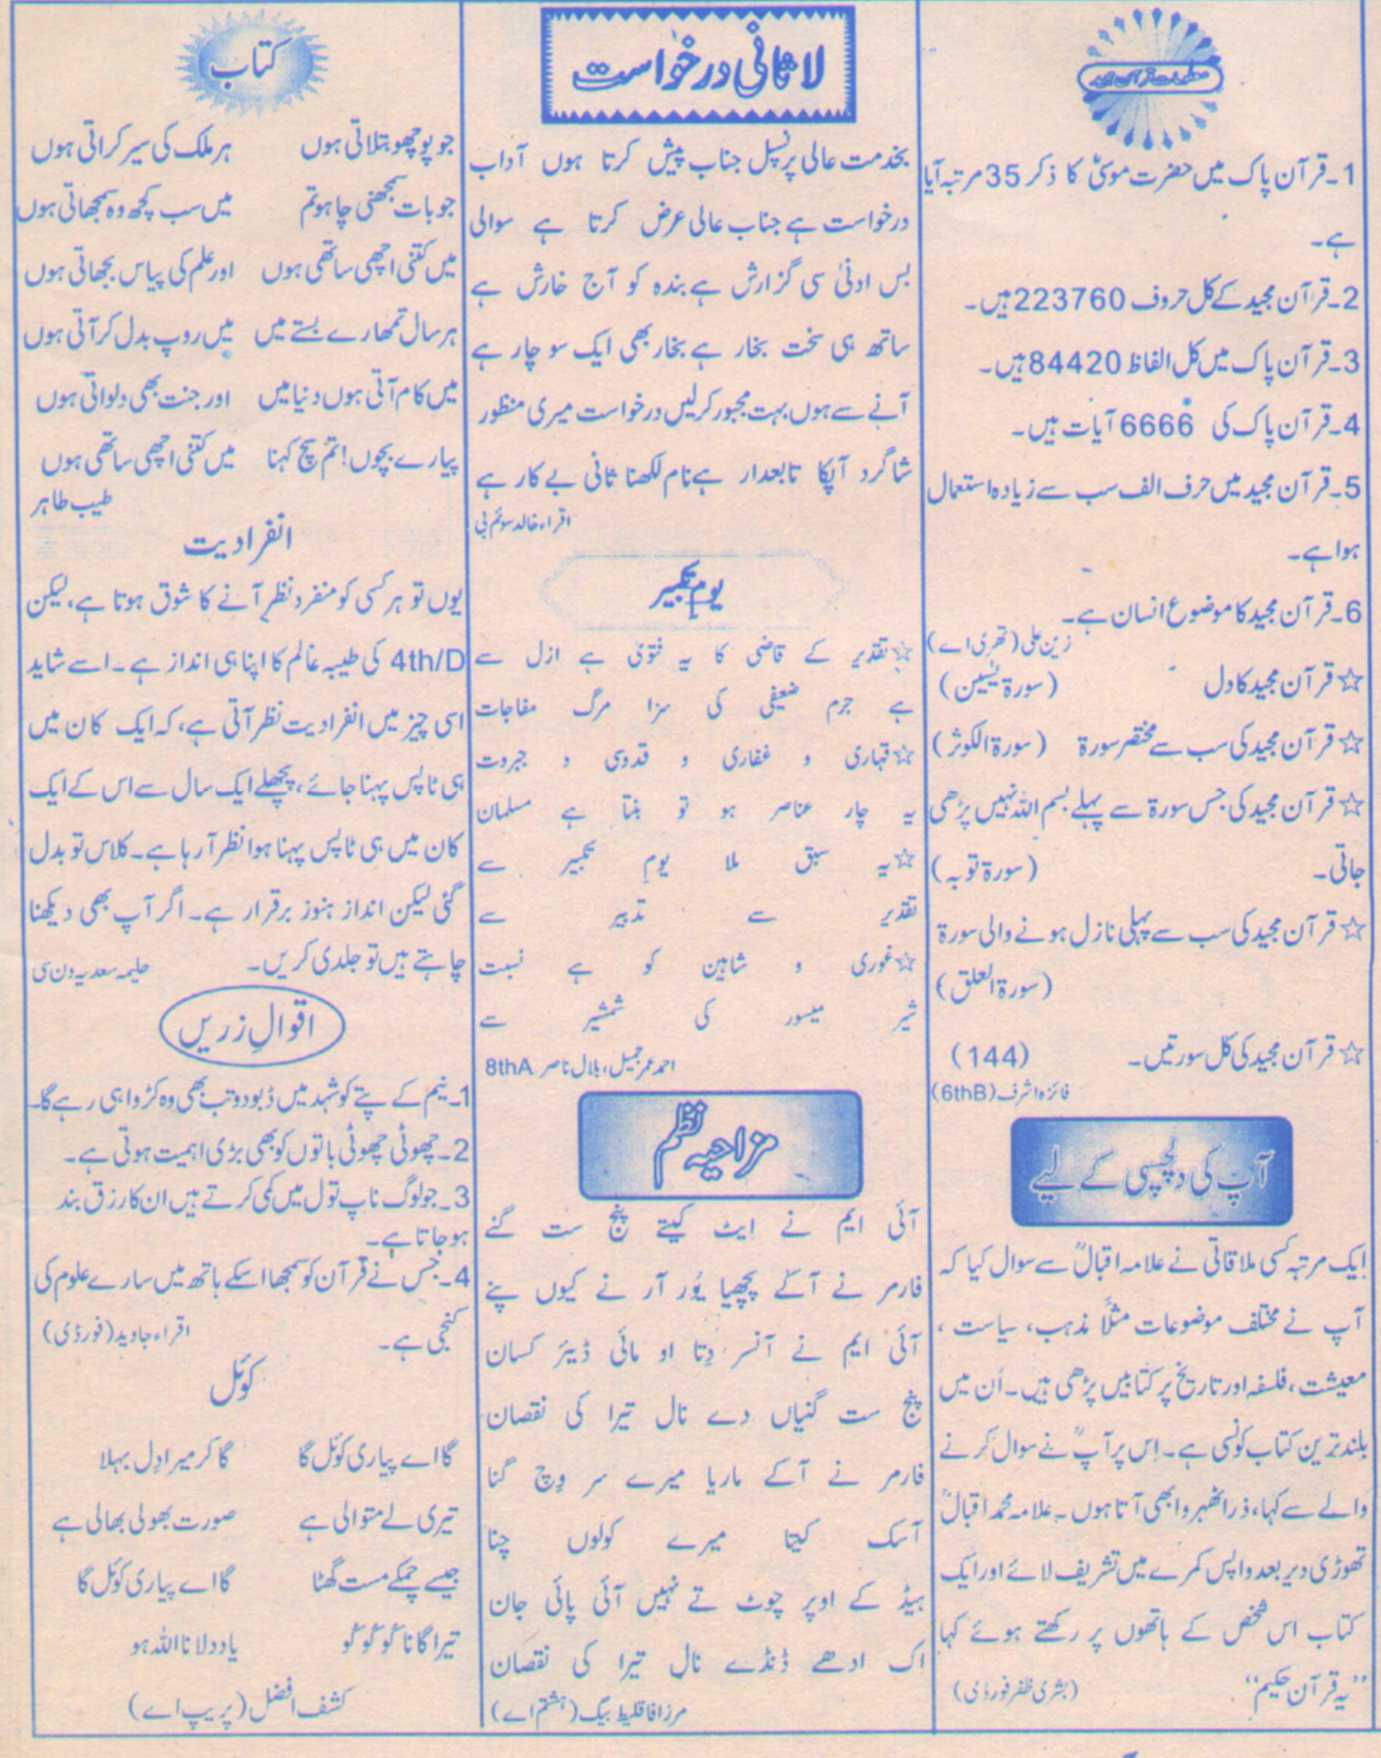 معلومات قرآن مجید
1۔قرآن پاک میں حضرت موسیٰؑ کا ذکر 35 مرتبہ آیا
ہے۔
2۔قرآن مجید کے کل حروف 223760 ہیں۔
3۔قرآن پاک میں کل الفاظ 84420 ہیں۔
4۔قرآن پاک کی 6666 آیات ہیں۔
5۔قرآن مجید میں حرف الف سب سے زیادہ استعمال
ہوا ہے۔
6۔قرآن مجید کا موضوع انسان ہے۔
زین علی (تھری اے)
☆قرآن مجید کا دل (سورۃ یٰسین)
☆قرآن مجید کی سب سے مختصر سورۃ (سورۃ الکوثر)
☆قرآن مجید کی جس سورۃ سے پہلے بسم اللہ نہیں پڑھی
جاتی۔ (سورۃ توبہ)
☆قرآن مجید کی سب سے پہلی نازل ہونے والی سورۃ
(سورۃ العلق)
☆قرآن مجید کی کل سورتیں۔ (144)
فائزہ اشرف (6thB)
آپ کی دلچسپی کے لیے
ایک مرتبہ کسی ملاقاتی نے علامہ اقبالؒ سے سوال کیا کہ
آپ نے مختلف موضوعات مثلاً مذہب، سیاست،
معیشت، فلسفہ اور تاریخ پر کتابیں پڑھی ہیں۔ اُن میں
بلند ترین کتاب کونسی ہے۔ اِس پر آپؒ نے سوال کرنے
والے سے کہا، ذرا ٹھہرو ابھی آتا ہوں۔ علامہ محمد اقبالؒ
تھوڑی دیر بعد واپس کمرے میں تشریف لائے اور ایک
کتاب اس شخص کے ہاتھوں پر رکھتے ہوئے کہا
”یہ قرآن حکیم“ (بشریٰ ظفر فورڈی)
لا ثانی درخواست
بخدمت عالی پرنسپل جناب پیش کرتا ہوں آداب
درخواست ہے جناب عالی عرض کرتا ہے سوالی
بس ادنیٰ سی گزارش ہے بندہ کو آج خارش ہے
ساتھ ہی سخت بخار ہے بخار بھی ایک سو چار ہے
آنے سے ہوں بہت مجبور کرلیں درخواست میری منظور
شاگرد آپکا تابعدار ہے نام لکھنا ثانی بے کار ہے
اقراء خالد سوئم بی
یوم تکبیر
☆تقدیر کے قاضی کا یہ فتویٰ ہے ازل سے
ہے جرم ضعیفی کی سزا مرگ مفاجات
☆قہاری و غفاری و قدوسی و جبروت
یہ چار عناصر ہو تو بنتا ہے مسلمان
☆یہ سبق ملا یومِ تکبیر سے
تقدیر ہے تدبیر سے
☆غوری و شاہین کو ہے نسبت
شیر میسور کی شمشیر سے
احمد عمر جمیل، بلال ناصر 8thA
مزاحیہ نظم
آئی ایم نے ایٹ کیتے پنج ست گنے
فارمر نے آکے پچھیا یُور آر نے کیوں پنے
آئی ایم نے آنسر دِتا او مائی ڈیئر کسان
پنج ست گنیاں دے نال تیرا کی نقصان
فارمر نے آکے ماریا میرے سر وچ گنا
آسک کیتا میرے کولوں چنا
ہیڈ کے اوپر چوٹ تے نہیں آئی پائی جان
اک ادھے ڈنڈے نال تیرا کی نقصان
مرزا فاقلیط بیگ (ہشتم اے)
کتاب
جو پوچھو بتلاتی ہوں ہر ملک کی سیر کراتی ہوں
جو بات سمجھنی چاہو تم میں سب کچھ وہ سمجھاتی ہوں
میں کتنی اچھی ساتھی ہوں اور علم کی پیاس بجھاتی ہوں
ہر سال تمھارے بستے میں میں روپ بدل کر آتی ہوں
میں کام آتی ہوں دنیا میں اور جنت بھی دلواتی ہوں
پیارے بچوں! تم سچ کہنا میں کتنی اچھی ساتھی ہوں
طیب طاہر
انفرادیت
یوں تو ہر کسی کو منفرد نظر آنے کا شوق ہوتا ہے، لیکن
4th/D کی طیبہ عالم کا اپنا ہی انداز ہے۔ اسے شاید
اسی چیز میں انفرادیت نظر آتی ہے، کہ ایک کان میں
ہی ٹاپس پہنا جائے، پچھلے ایک سال سے اس کے ایک
کان میں ہی ٹاپس پہنا ہوا نظر آرہا ہے۔ کلاس تو بدل
گئی لیکن انداز ہنوز برقرار ہے۔ اگر آپ بھی دیکھنا
چاہتے ہیں تو جلدی کریں۔ حلیمہ سعدیہ ون سی
اقوالِ زریں
1۔نیم کے پتے کو شہد میں ڈبو دو تب بھی وہ کڑوا ہی رہے گا۔
2۔چھوٹی چھوٹی باتوں کو بھی بڑی اہمیت ہوتی ہے۔
3۔جو لوگ ناپ تول میں کمی کرتے ہیں ان کا رزق بند
ہوجاتا ہے۔
4۔جس نے قرآن کو سمجھا اسکے ہاتھ میں سارے علوم کی
کنجی ہے۔ اقراء جاوید (فورڈی)
کوئل
گا اے پیاری کوئل گا گا کر میرا دِل بہلا
تیری لے متوالی ہے صورت بھولی بھالی ہے
جیسے چمکے مست گھٹا گا اے پیاری کوئل گا
تیرا گانا کُو کُو کُو یاد دلانا اللہ ہو
کشف افضل (پریپ اے)